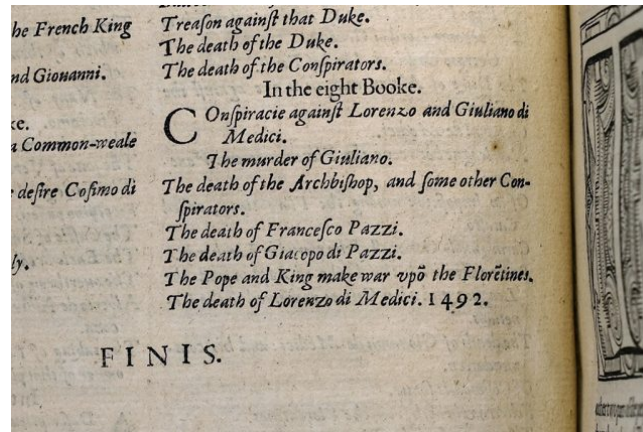 he French King
nd Giouanni.
ke.
a Common-weale
e desire Cosimo di
ly.
Treaſon againſt that Duke.
The death of the Duke.
The death of the Conſpirators.
In the eight Booke.
COnſpiracie againſt Lorenzo and Giuliano di
Medici.
The murder of Giuliano.
The death of the Archbiſhop, and ſome other Con-
ſpirators.
The death of Franceſco Pazzi.
The death of Giacopo di Pazzi.
The Pope and King make war vpõ the Florẽtines.
The death of Lorenzo di Medici. 1492.
FINIS.